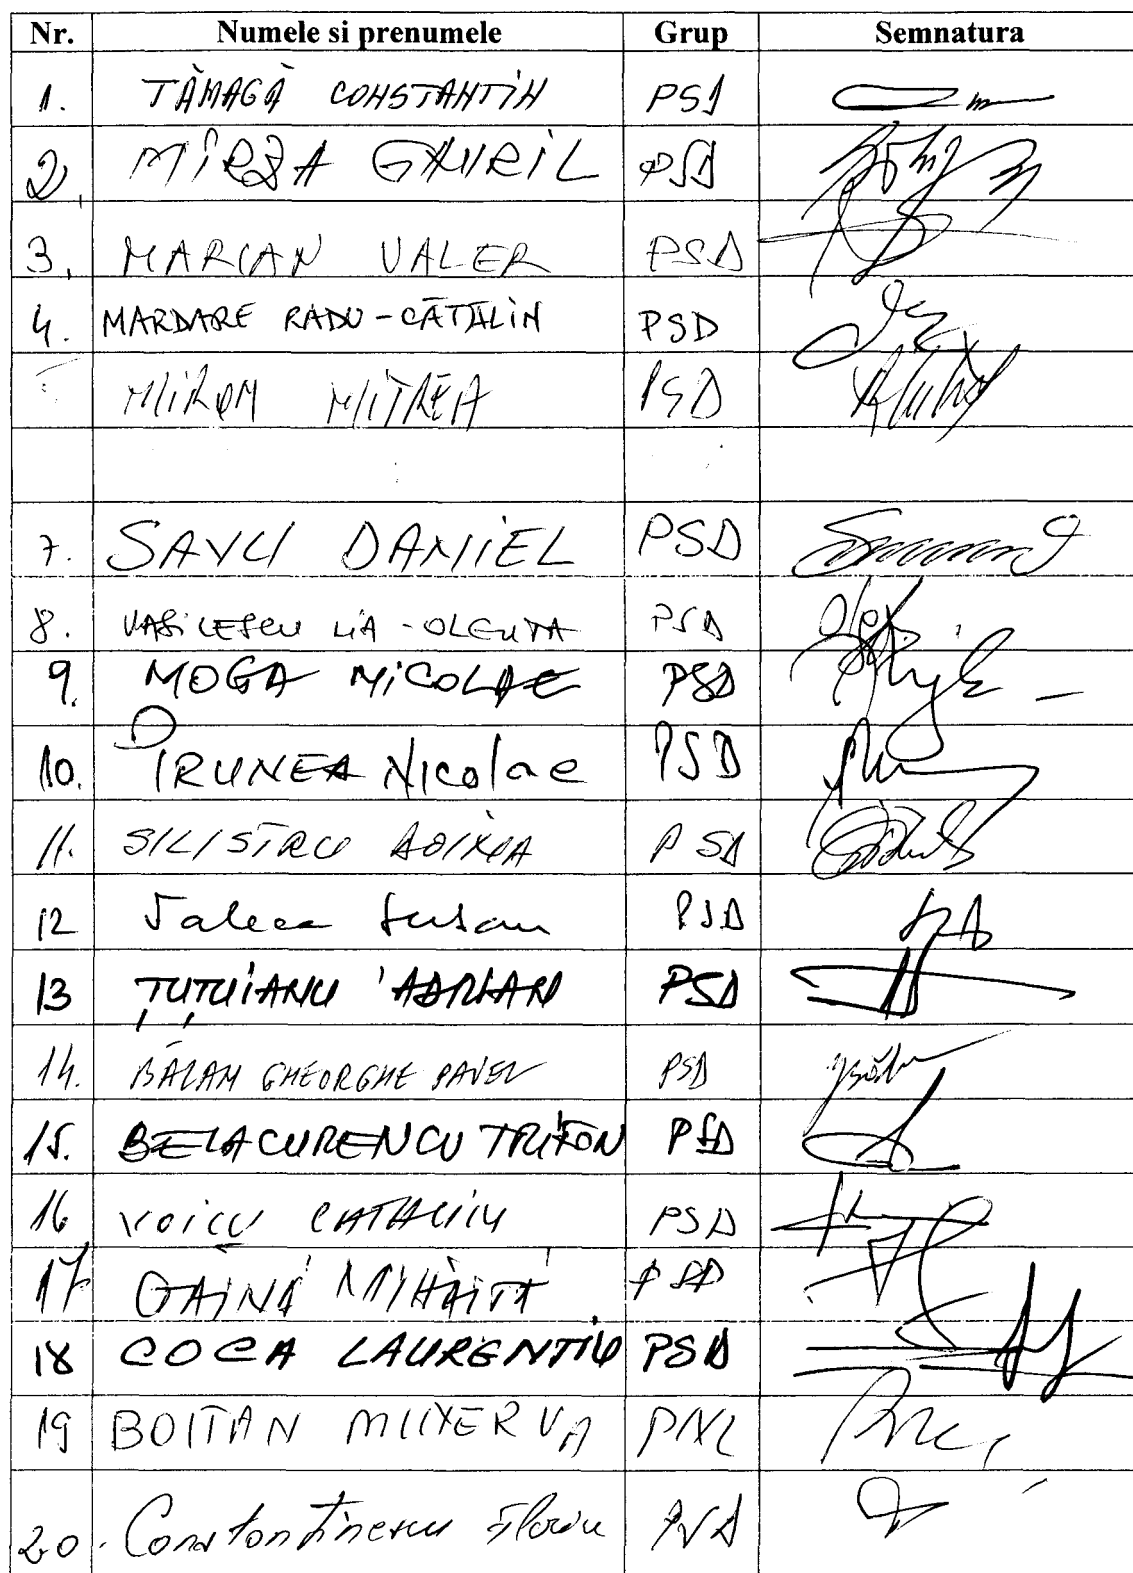 Nr. Numele si prenumele Grup Semnatura
1. TĂMAGĂ CONSTANTIN PSD
2. MÎRZA GAVRIL PSD
3. MARIAN VALER PSD
4. MARDARE RADU-CĂTĂLIN PSD
MIRON MITREA PSD
7. SAVU DANIEL PSD
8. VASILESCU LIA-OLGUTA PSD
9. MOGA NICOLAE PSD
10. DIRUNEA Nicolae PSD
11. SILISTRU DOINA PSD
12 Valeca Serban PSD
13 ȚUȚUIANU ADRIAN PSD
14. BĂLAN GHEORGHE PAVEL PSD
15. BELACURENCU TRIFON PSD
16 VOICU CATALIN PSD
17 GĂINĂ MIHĂIȚĂ PSD
18 COCA LAURENTIU PSD
19 BOITAN MINERVA PNL
20. Constantinescu Florin PSD